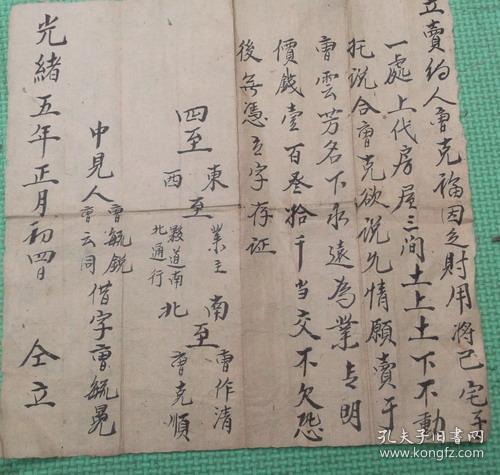 立賣約人曹克福因乏財用將己宅子
一處上代房屋三间土上土下不動
托说合曹克欲说允情愿賣于
曹雲芳名下永遠為業言明
價錢壹百叁拾千当交不欠恐
後無憑立字存证
四至 東至業主 南至曹作清
西至 㪇道南北通行 北 曹克順
中見人 曹毓銳 曹云同 借字曹毓晃
光緒五年正月初四日 仝立
孔夫子旧书网
kongfz.com